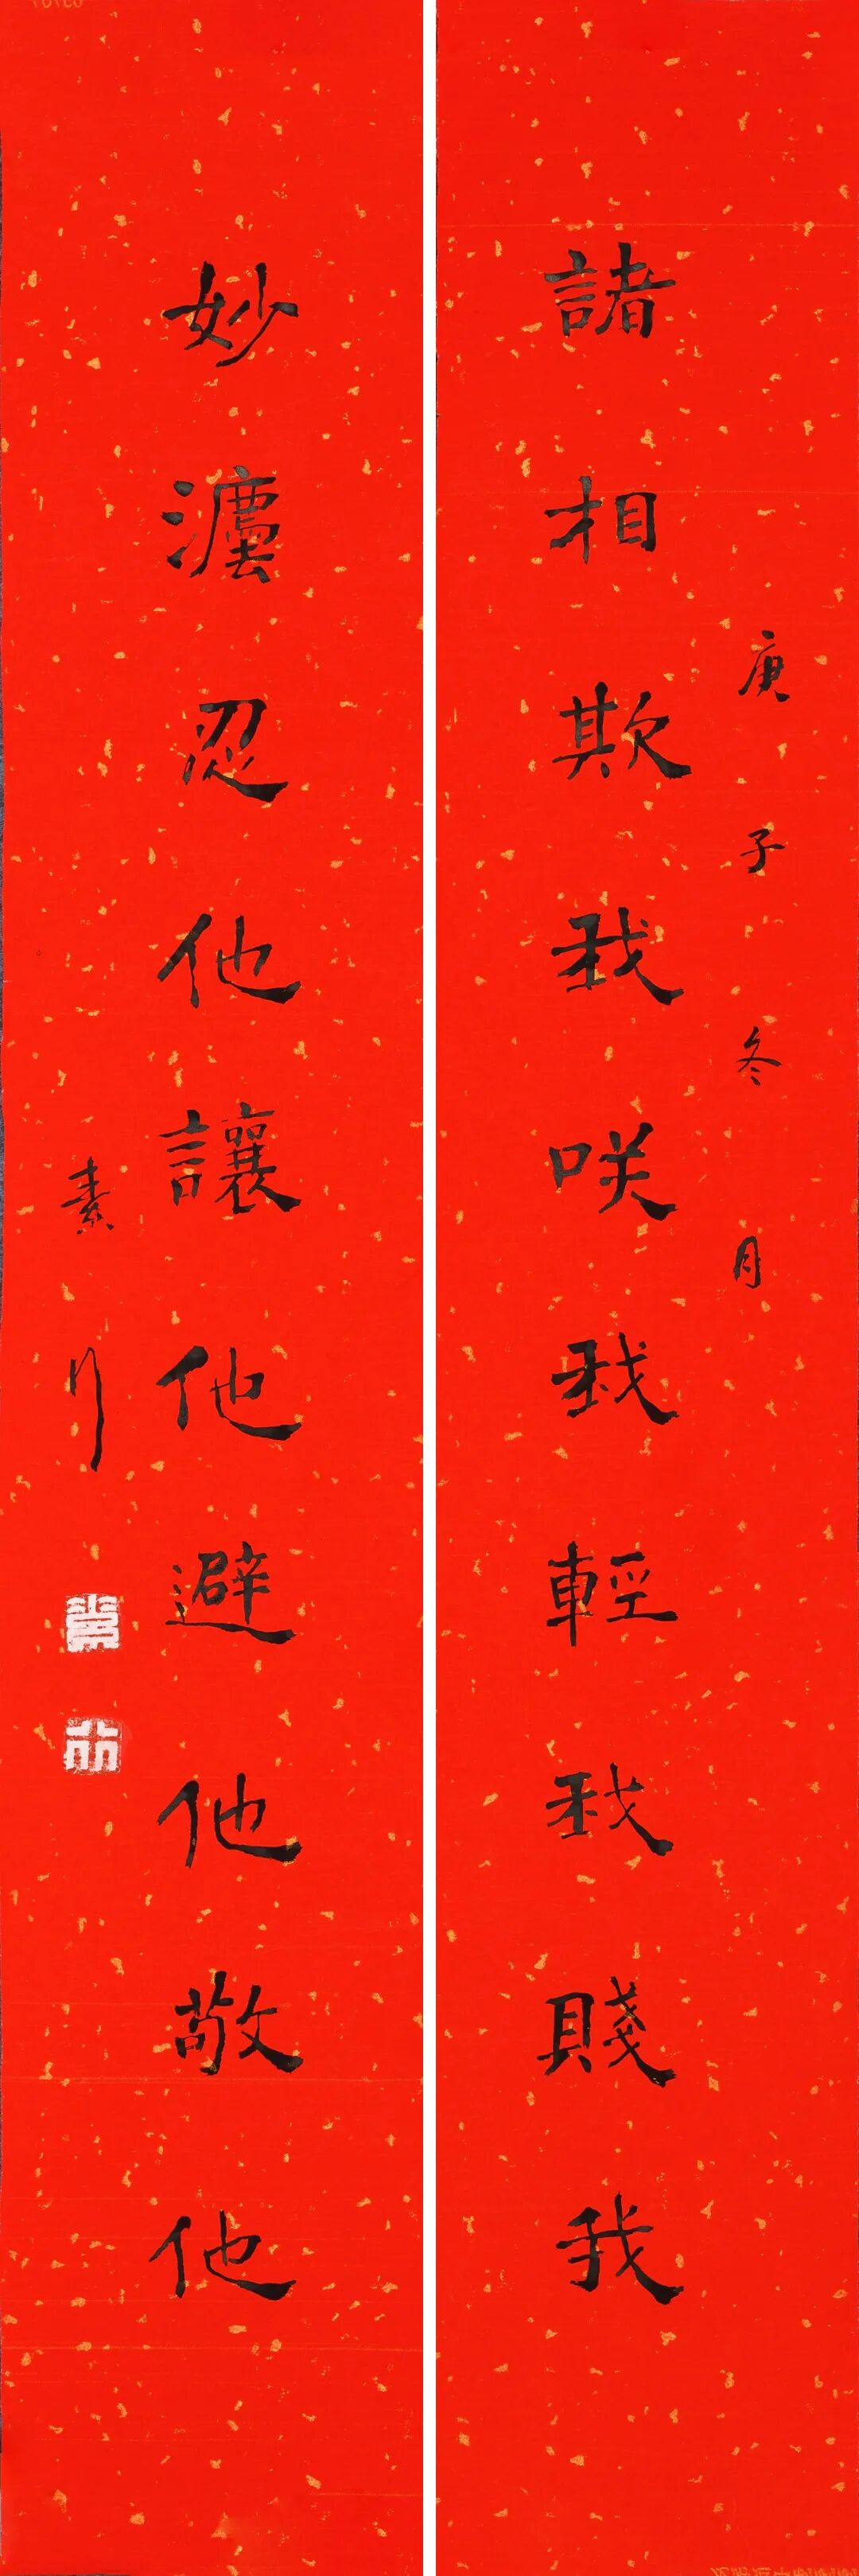 庚子冬月
諸相欺我咲我輕我賤我
妙灋忍他讓他避他敬他
素行